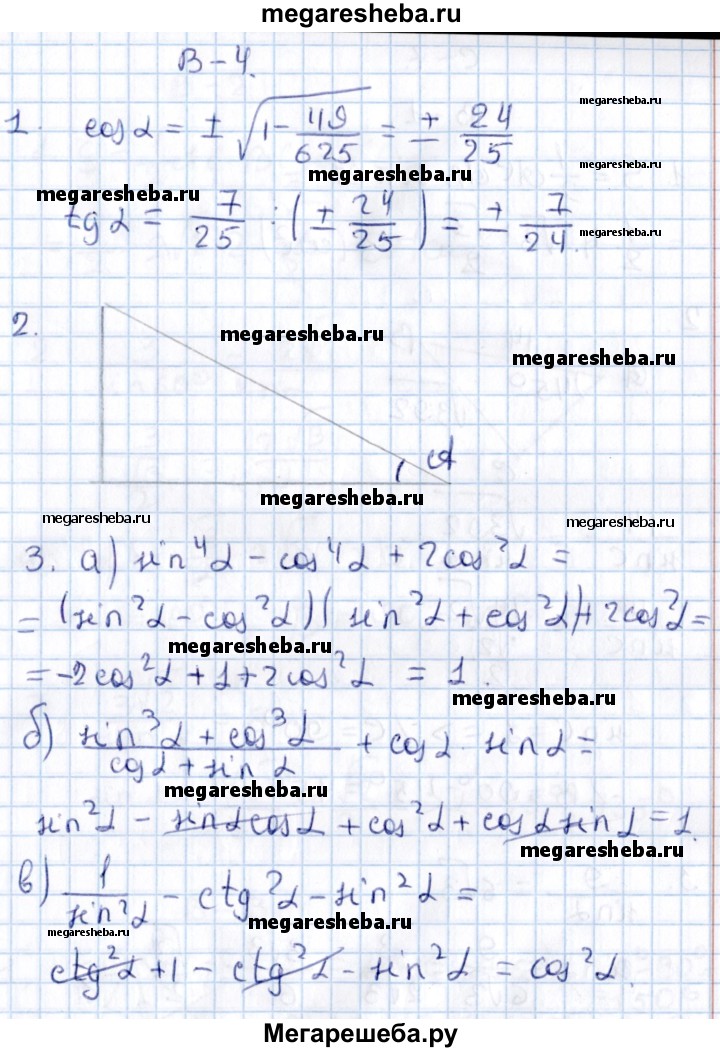 megaresheba.ru
В-4.
megaresheba.ru
1. cos α = ± √(1 - 49/625) = ± 24/25
megaresheba.ru
megaresheba.ru
megaresheba.ru
tg α = 7/25 : (± 24/25) = ± 7/24.
megaresheba.ru
2.
megaresheba.ru
megaresheba.ru
A
megaresheba.ru
megaresheba.ru
megaresheba.ru
3. а) sin⁴α - cos⁴α + 2cos²α =
= (sin²α - cos²α)(sin²α + cos²α)+2cos²α =
megaresheba.ru
= -2cos²α + 1 + 2cos²α = 1.
megaresheba.ru
б) (sin³α + cos³α)/(cosα + sinα) + cosα · sinα =
megaresheba.ru
sin²α - sinαcosα + cos²α + cosαsinα = 1.
megaresheba.ru
в) 1/sin²α - ctg²α - sin²α =
megaresheba.ru
megaresheba.ru
ctg²α + 1 - ctg²α - sin²α = cos²α.
Мегарешеба.ру